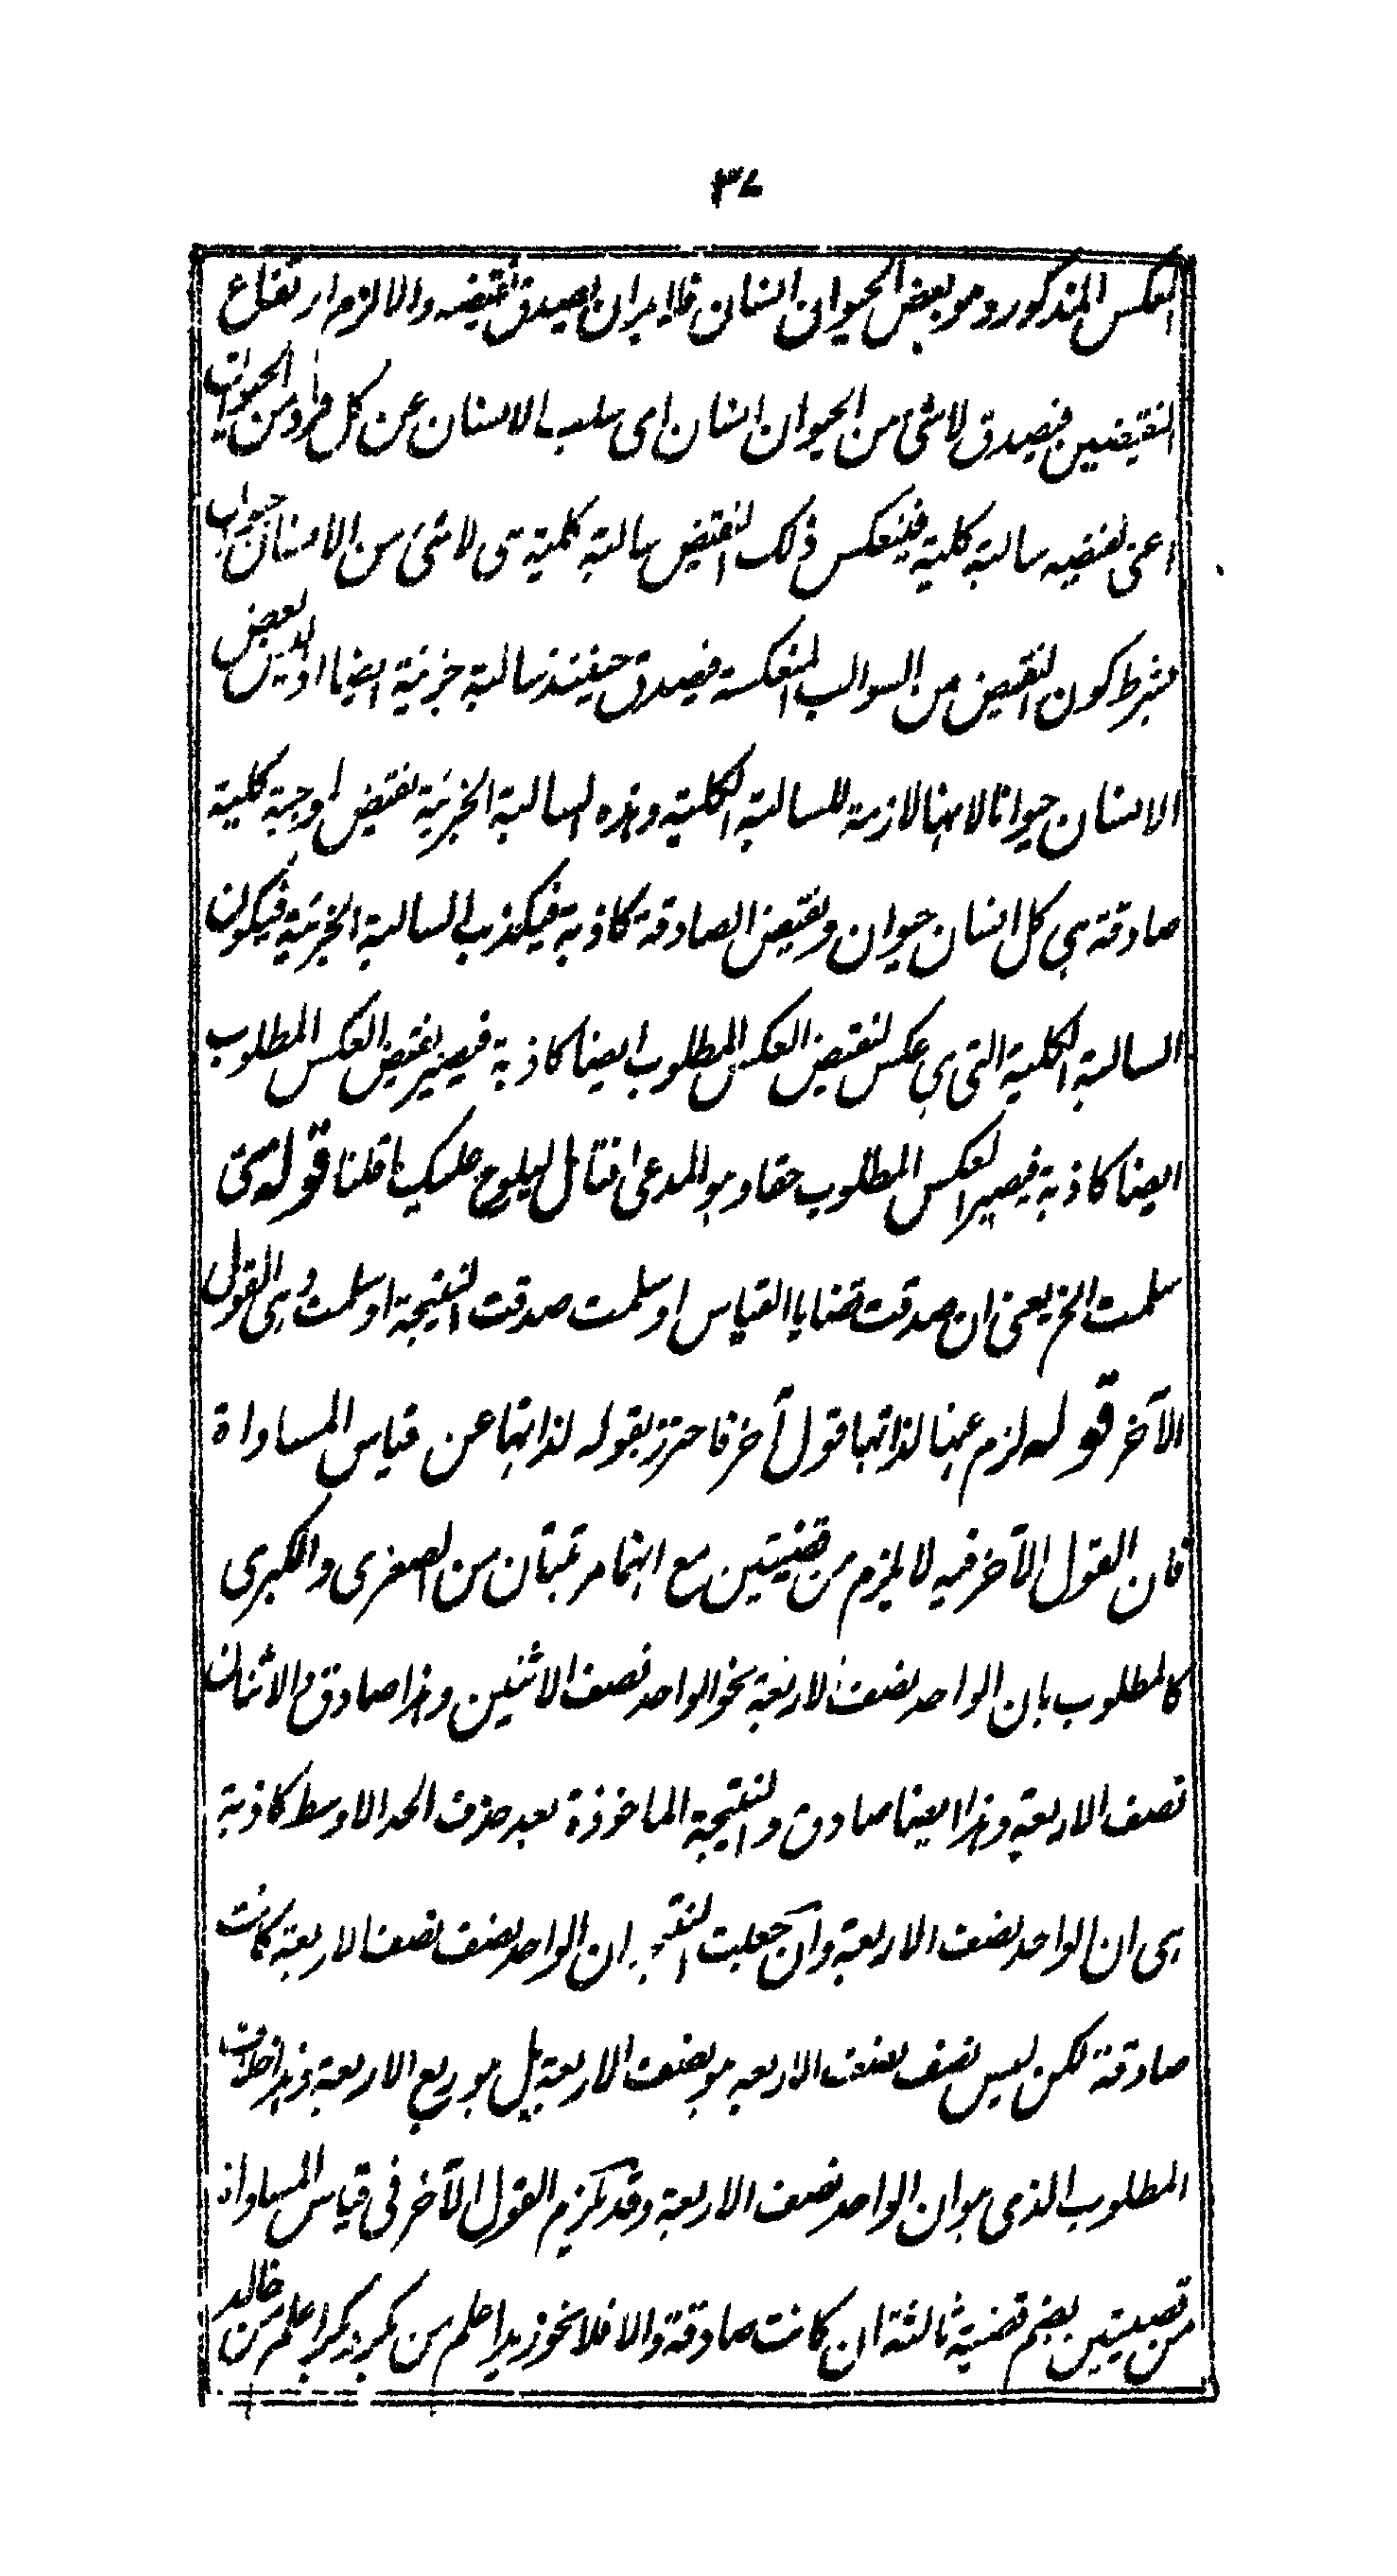 ٣٧
العكس المذكور وهو بعض الحيوان انسان فلا بد ان يصدق نقيضه والا لزم ارتفاع
النقيضين فيصدق لا شئ من الحيوان انسان اى سلب الانسان عن كل فرد من الحيوان
اعنى نقيضه سالبة كلية فينعكس ذلك النقيض سالبة كلية هى لا شئ من الانسان حيوان
بشرط كون النقيض من السوالب المنعكسة فيصدق حينئذ سالبة جزئية ايضا اذ ليس بعض
الانسان حيوانا لانها لازمة للسالبة الكلية وهذه السالبة الجزئية نقيض لموجبة كلية
صادقة هى كل انسان حيوان ونقيض الصادقة كاذبة فيكذب السالبة الجزئية فيكون
السالبة الكلية التى هى عكس لنقيض العكس المطلوب ايضا كاذبة فيصير نقيض العكس المطلوب
ايضا كاذبة فيصير العكس المطلوب حقا وهو المدعى فتأمل ليلوح عليك ما قلنا قوله متى
سلمت الخ يعنى ان صدقت قضايا القياس او سلمت صدقت النتيجة او سلمت وهى القول
الآخر قوله لزم عنها لذاتها قول آخر فاحترز بقوله لذاتها عن قياس المساواة
فان القول الآخر فيه لا يلزم من قضيتين مع انهما مرتبتان من الصغرى والكبرى
كالمطلوب بان الواحد نصف الاربعة نحو الواحد نصف الاثنين وهذا صادق والاثنان
نصف الاربعة وهذا ايضا صادق والنتيجة الماخوذة بعد حذف الحد الاوسط كاذبة
هى ان الواحد نصف الاربعة وان جعلت النتيجة ان الواحد نصف نصف الاربعة كانت
صادقة لكن ليس نصف نصف الاربعه هو نصف الاربعة بل هو ربع الاربعة وهذا خلاف
المطلوب الذى هو ان الواحد نصف الاربعة وقد يلزم القول الآخر فى قياس المساواة
من قضيتين بضم قضية ثالثة ان كانت صادقة والا فلا نحو زيد اعلم من بكر وبكر اعلم من خالد